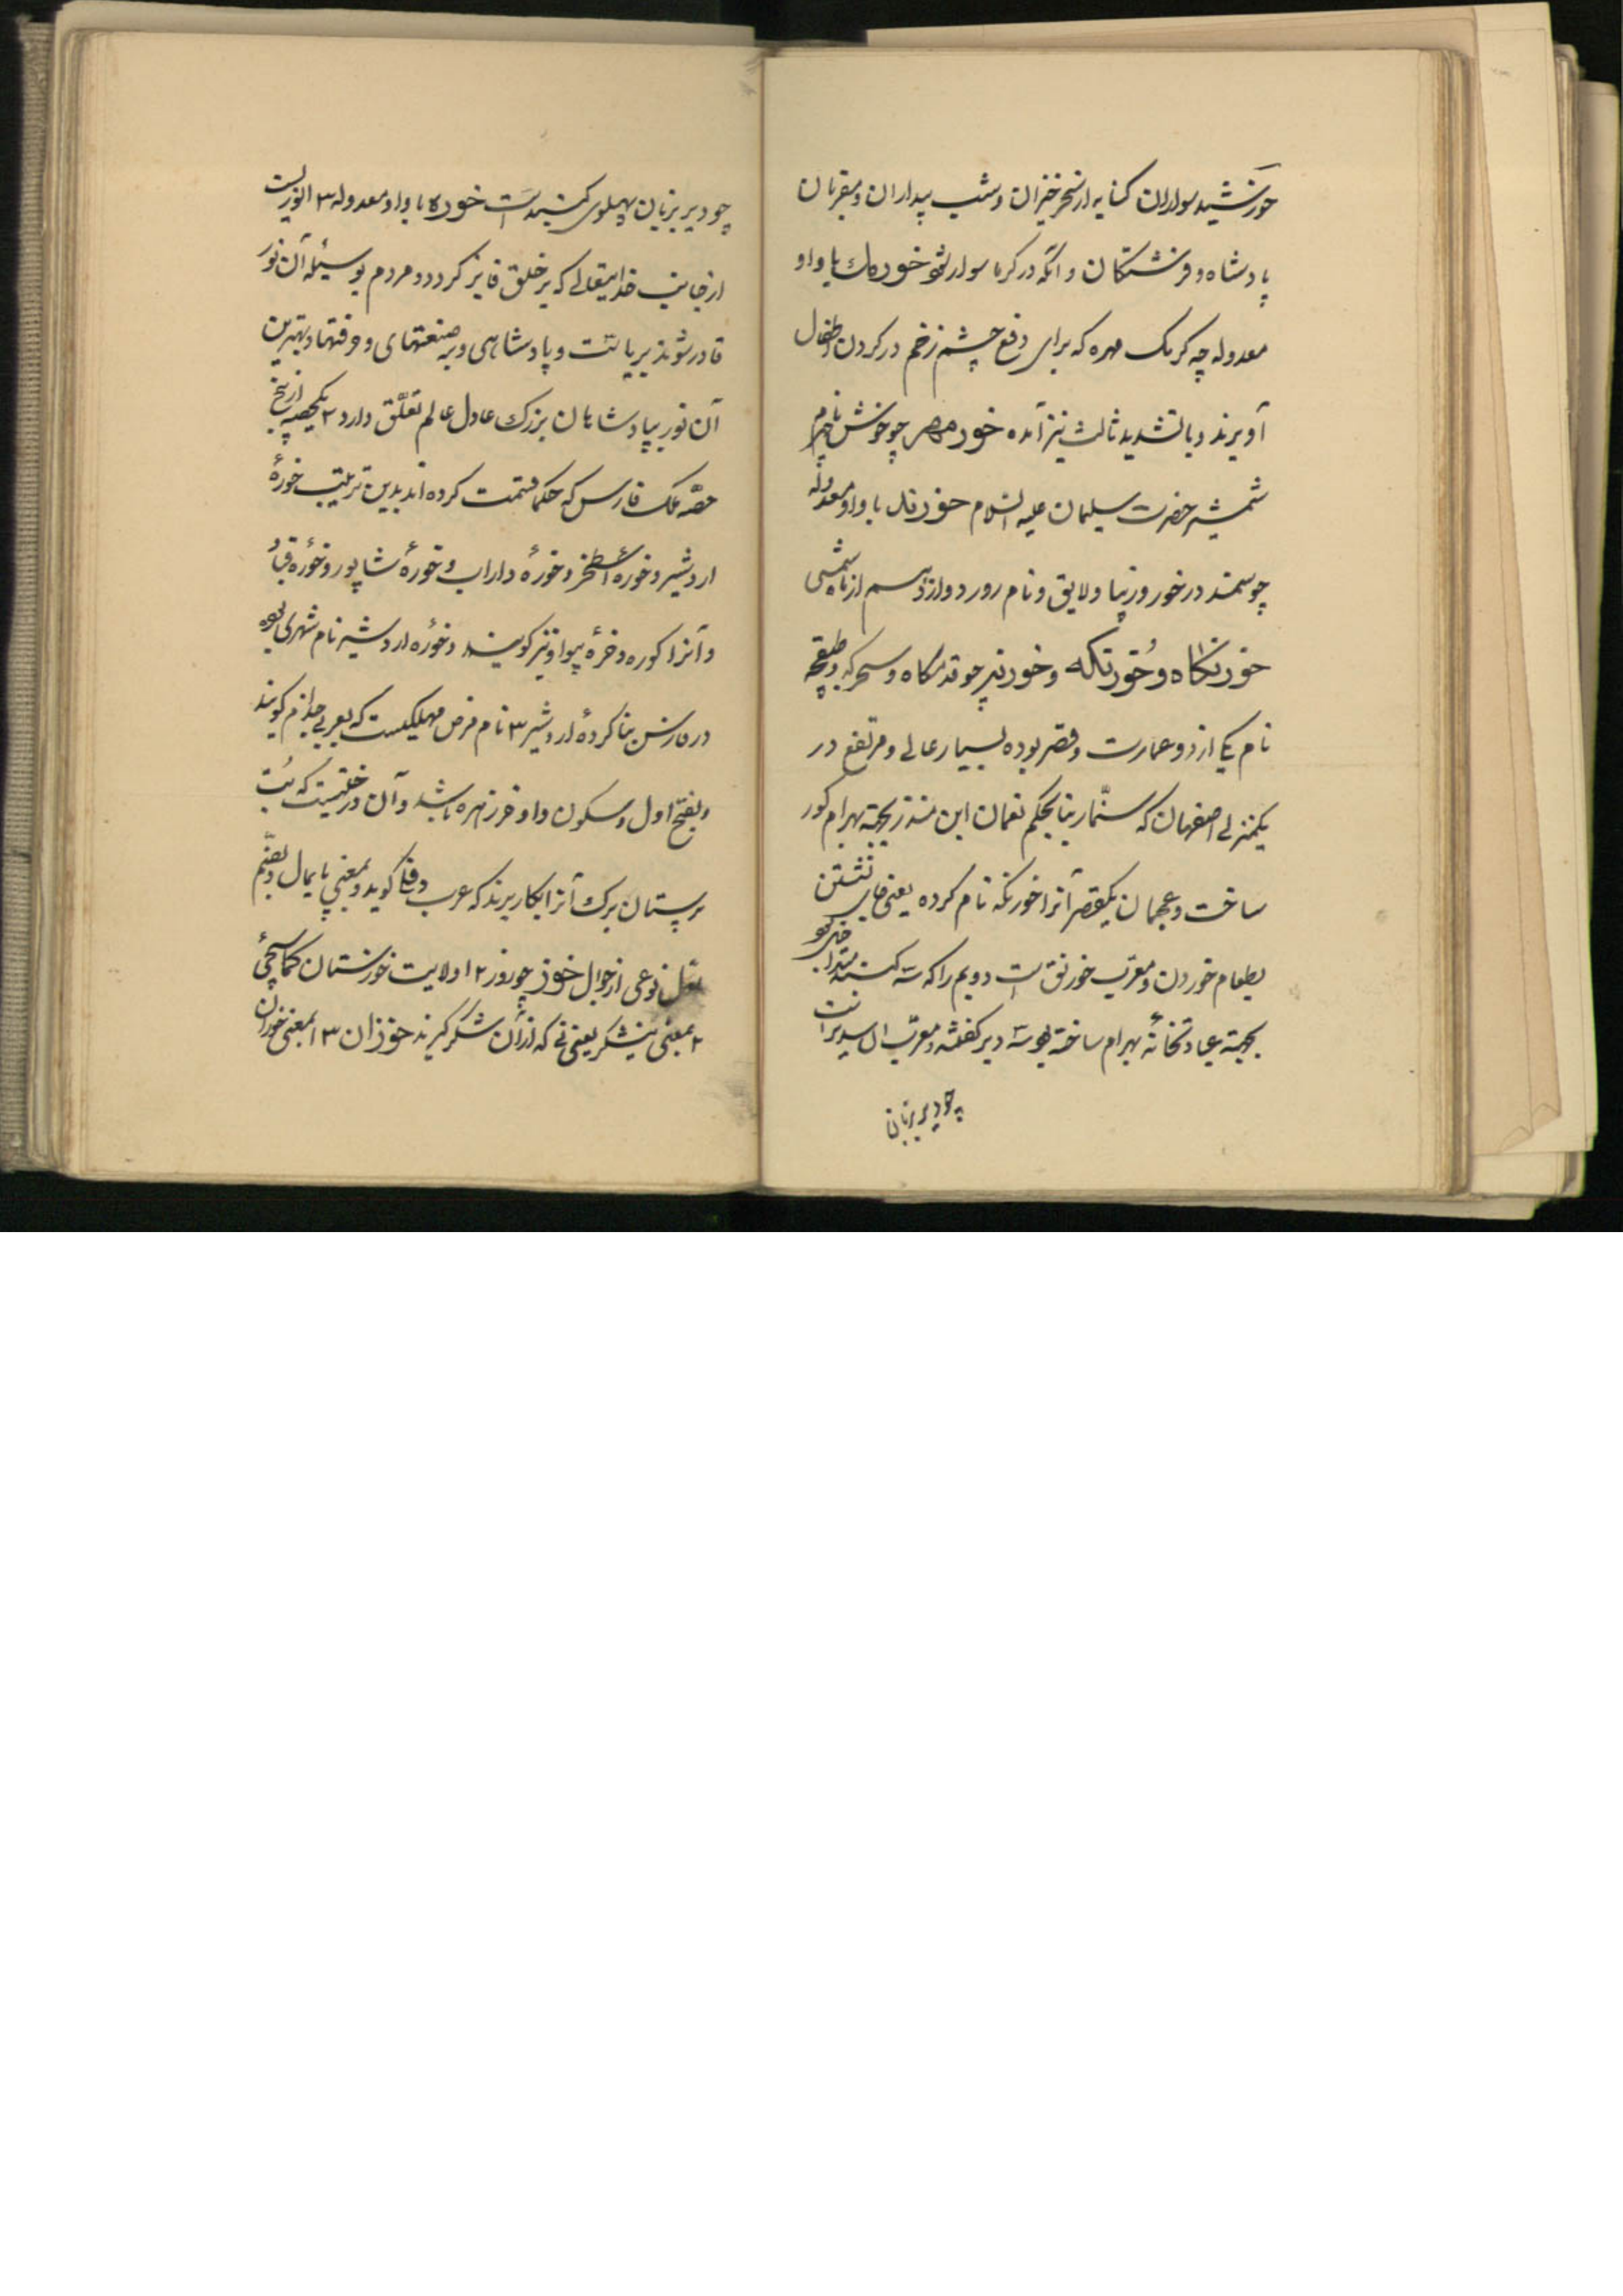 خورشید سواران کنایه از سحرخیزان و شب بیداران و مقربان
پادشاه و فرشتگان و آنکه در گرما سوار شود خورمك با واو
معدوله چه کرمک مهره که برای دفع چشم زخم در گردن اطفال
آویزند و با تشدید ثالث نیز آمده خورمهر چو خوش نام
شمشیر حضرت سلیمان علیه السلام خورند با واو معدوله
چو سمند در خور و زیبا و لایق و نام روز دوازدهم از ماه شمسی
خورنگاه و خورنکه و خورنیر چو قدمگاه و سحرگه و
نام یکی از دو عمارت و قصر بوده بسیار عالی و مرتفع در
یکمنزلی اصفهان که سنّمار بنا بحکم نعمان ابن منذر بجهة بهرام کور
ساخت و عجمان یکقصر آنرا خورنکه نام کرده یعنی جای نشستن
بطعام خوردن و معرب خورنق است دویم را که سه کنبد
بجهة عبادتخانهٔ بهرام ساخته بود سه دیر گفتند و معرب آن سدیر است
چو دیر بزبان
چو دیر بزبان پهلوی کنبد است خوره با واو معدوله ۳ ا نوریست
از جانب خدایتعالی که بر خلق فایز گردد و مردم بوسیلهٔ آن نور
قادر شوند بریاست و پادشاهی و بر صنعتهای و حرفتها و بهترین
آن نور بپادشاهان بزرك عادل عالم تعلّق دارد ۲ یکحصه از پنج
حصّه ملک فارس که حکما قسمت کرده اند بدین ترتیب خورهٔ
اردشیر و خورهٔ اصطخر و خورهٔ داراب و خورهٔ شاپور و خورهٔ قباد
و آنرا کوره و خرهٔ بیواو نیز کویند و خورهٔ اردشیر نام شهری بوده
در فارس بنا کردهٔ اردشیر ۳ نام مرض مهلکیست که بعربی جذام کویند
و بفتح اول و سکون واو خرزهره باشد و آن درختیست که بُت
پرستان برك آنرا بکار برند که عرب دفلی کوید و بمعنی پایمال و بضم
نوعی از جوال خوز چو روز ۲ ا ولایت خوزستان
۲ بمعنی نیشکر یعنی نی که از آن شکر کیرند خوزان ۳ ا بمعنی خوزان